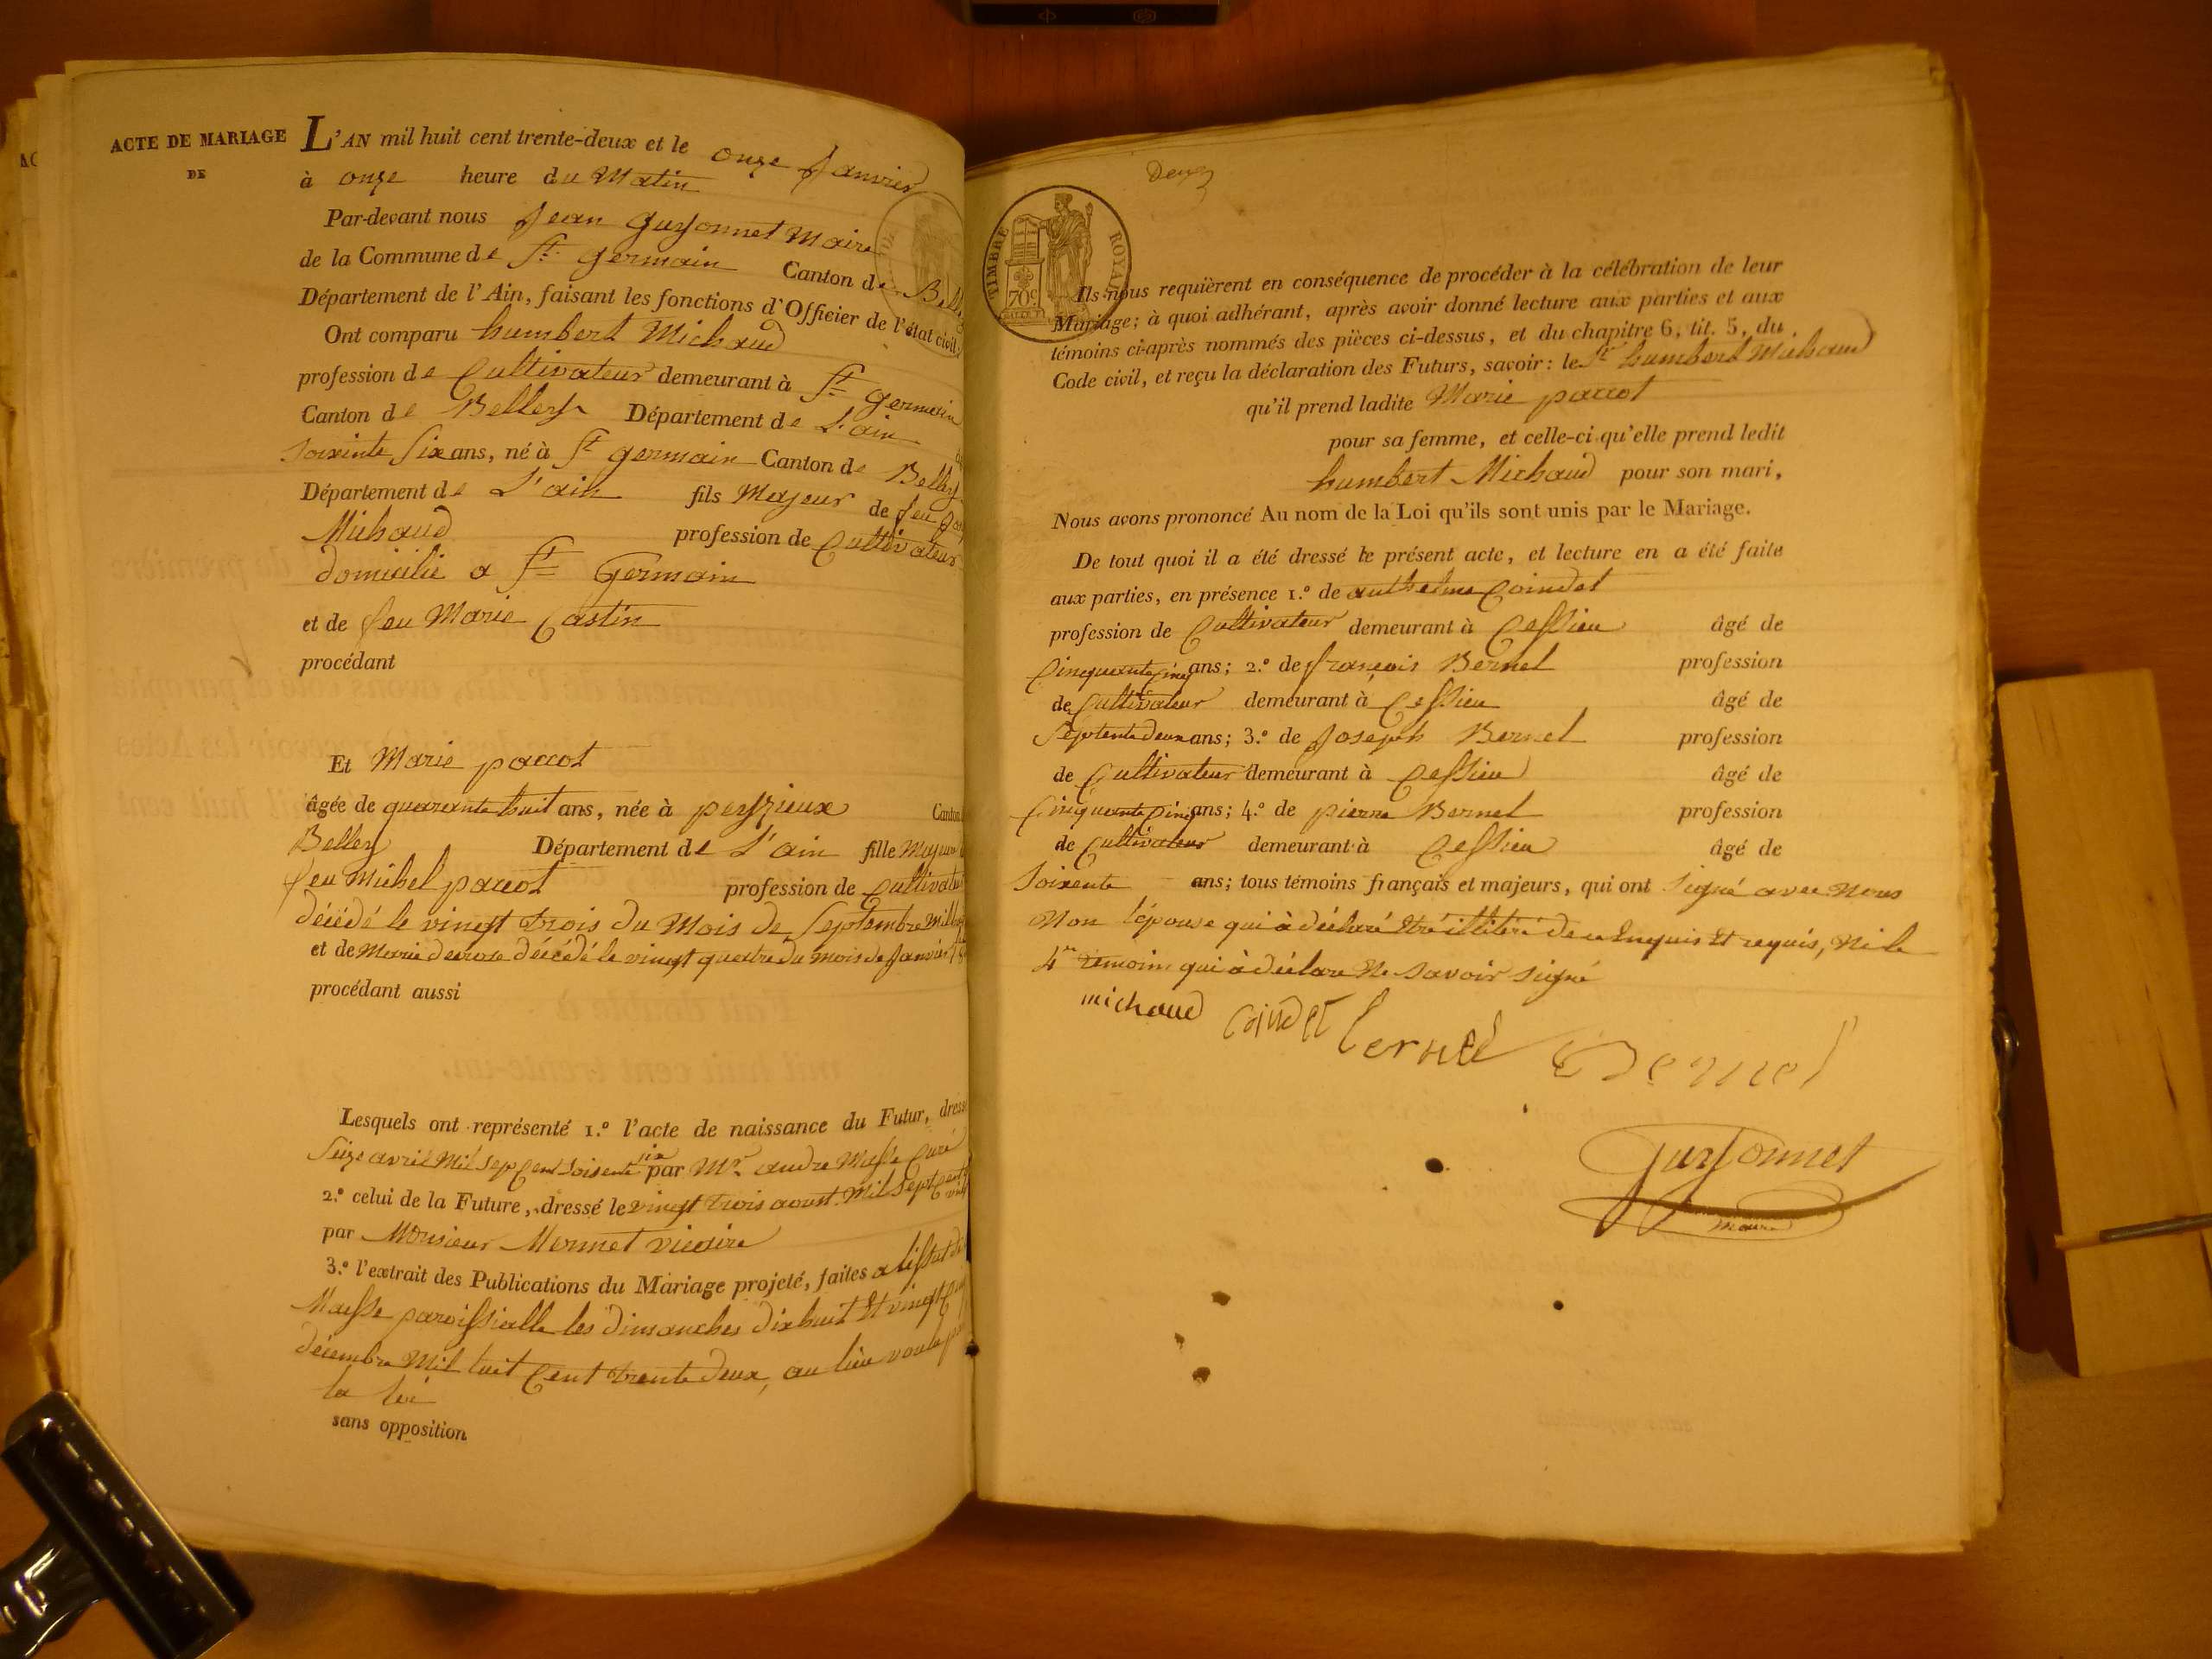 ACTE DE MARIAGE
DE
L'AN mil huit cent trente-deux et le onze Janvier
à onze heure du Matin
Par-devant nous Jean Guyonnet Maire
de la Commune de St. germain Canton de Bell
Département de l'Ain, faisant les fonctions d'Officier de l'état civil.
Ont comparu humbert Michaud
profession de Cultivateur demeurant à St germain
Canton de Belley Département de L'ain
soixinte six ans, né à St germain Canton de Belley
Département de L'ain fils Majeur de feu
Michaud profession de Cultivateur
domicilié a St Germain
et de feu Marie Castin
procédant
Et Marie paccot
âgée de quarante huit ans, née à peyzieux Canton
Belley Département de L'ain fille Majeure
feu Michel paccot profession de Cultivateur
décédé le vingt trois du Mois de Septembre Mil
et de Marie décédé le vingt quatre du mois de Janvier
procédant aussi
Lesquels ont représenté 1.º l'acte de naissance du Futur, dressé
Seize avril Mil sept Cent soisente six par Mr. andre Masse Curé
2.º celui de la Future, dressé le vingt trois aoust Mil Sept Cent
par Monsieur Monnet vicaire
3.º l'extrait des Publications du Mariage projeté, faites a lissut de
Masse paroissialle les dimanches dixhuit Et vingt
décembre Mil huit Cent trente deux, au lieu voulu
la loi
sans opposition
Deux
TIMBRE ROYAL
70c.
Ils nous requièrent en conséquence de procéder à la célébration de leur
Mariage; à quoi adhérant, après avoir donné lecture aux parties et aux
témoins ci-après nommés des pièces ci-dessus, et du chapitre 6, tit. 5, du
Code civil, et reçu la déclaration des Futurs, savoir: le Sr humbert Michaud
qu'il prend ladite Marie paccot
pour sa femme, et celle-ci qu'elle prend ledit
humbert Michaud pour son mari,
Nous avons prononcé Au nom de la Loi qu'ils sont unis par le Mariage.
De tout quoi il a été dressé le présent acte, et lecture en a été faite
aux parties, en présence 1.º de anthelme Coindet
profession de Cultivateur demeurant à Cessieu âgé de
Cinquante Cinq ans; 2.º de françois Bernet profession
de Cultivateur demeurant à Cessieu âgé de
Septente deux ans; 3.º de Joseph Bernet profession
de Cultivateur demeurant à Cessieu âgé de
Cinquante Cinq ans; 4.º de pierre Bernet profession
de Cultivateur demeurant à Cessieu âgé de
Soixente ans; tous témoins français et majeurs, qui ont signé avec Nous
Non l'épouse qui à déclaré Etre illitéré de ce Enquis Et requis, Ni le
4me temoins qui à déclare Ne Savoir signé
michaud Coindet bernet Bernet
Guyonnet
maire